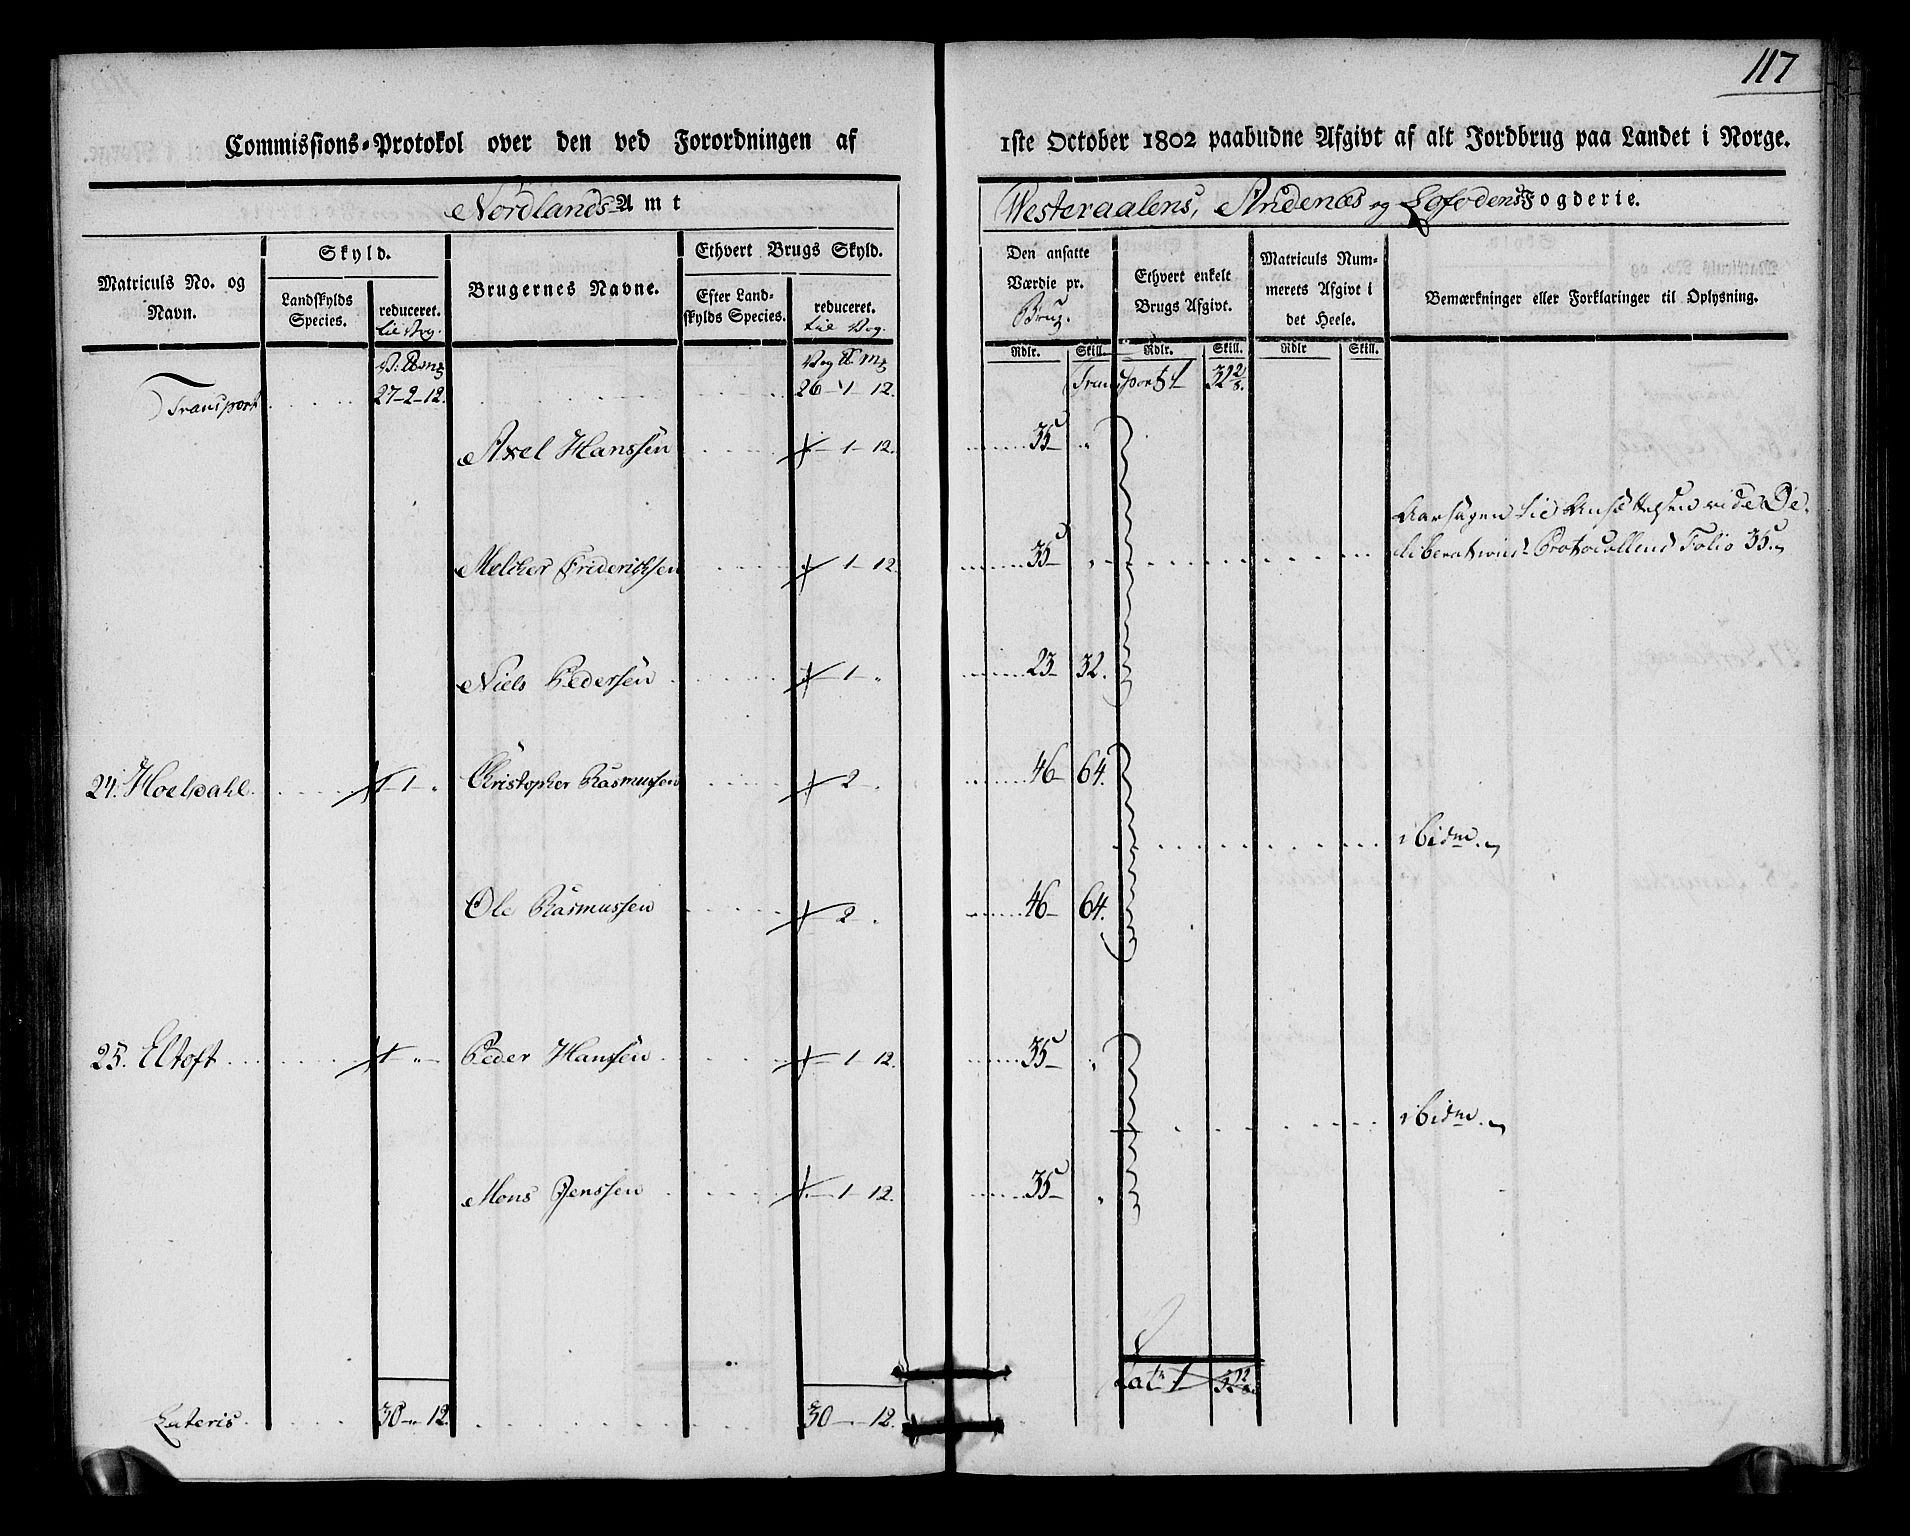 117
Commissions-Protokol over den ved Forordningen af 1ste October 1802 paabudne Afgivt af alt Jordbrug paa Landet i Norge.
Nordlands Amt
Westeraalens, Andenæs og Lofodens Fogderie.
Matriculs No. og Navn.
Skyld.
Landskylds Species.
reduceret. til Vog.
Brugernes Navne.
Ethvert Brugs Skyld.
Efter Landskylds Species.
reduceret. til Vog.
Den ansatte Værdie pr. Brug.
Ethvert enkelt Brugs Afgivt.
Matriculs Nummerets Afgivt i det Heele.
Bemærkninger eller Forklaringer til Oplysning.
Rdlr. Skill. Rdlr. Skill. Rdlr Skill.
Transport 27-2-12. 26-1-12. Transport
Axel Hanssen 1-12. 35 "
Aarsagen til Ansættelsen vide De-
Melcher Friderichsen 1-12. 35 " liberations Protocollens Folio 35.
Niels Pedersen 1 " 23 32.
24. Hoelsdahl 1 " Christopher Rasmussen 2 " 46 64.
ibidm.
Ole Rasmussen 2 " 46 64.
25. Eltoft 1 " Peder Hanssen 1-12. 35 "
ibidm.
Mons Jenssen 1-12. 35 "
Lat
Lateris 30 " 12. 30 " 12.